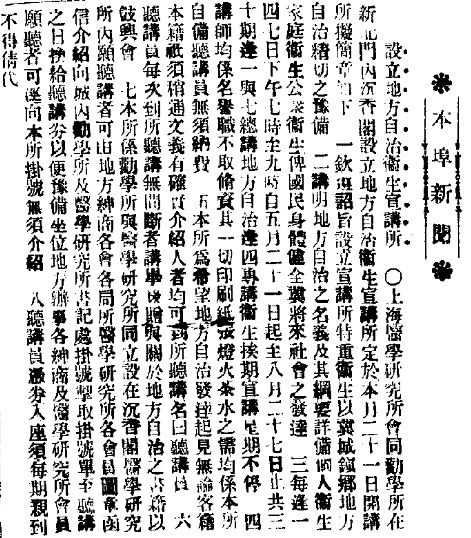 本埠新聞
設立地方自治衞生宣講所　○上海醫學研究所會同勸學所在
新北門內沉香閣設立地方自治衞生宣講所定於本月二十一日開講
所擬簡章如下　一欽遵詔旨設立宣講所特重衞生以冀城鎮鄉地方
自治精切之豫備　二講明地方自治之名義及其綱要詳備個人衞生
家庭衞生公衆衞生俾國民身體健全冀將來社會之發達　三每逢一
四七日下午七時至九時自五月二十一日起至八月二十七日止共三
十期逢一與七總講地方自治逢四專講衞生挨期宣講星期不停　四
講師均係名譽職不取脩資其一切印刷紙張燈火茶水之需均係本所
自備聽講員無須納費　五本所爲希望地方自治發達起見無論客籍
本籍祇須稍通文義有確實介紹人者均可到所聽講名曰聽講員　六
聽講員每次到所聽講無間斷者講畢後贈與關於地方自治之書籍以
鼓興會　七本所係勸學所與醫學研究所同立設在沉香閣醫學研究
所內願聽講者可由地方紳商各會各局所醫學研究所各會員圖章函
信介紹向城內勸學所及醫學研究所書記處掛號掣取掛號單至聽講
之日換給聽講劵以便豫備坐位地方辦事各紳商及醫學研究所會員
願聽者可逕向本所掛號無須介紹　八聽講員憑劵入座須每期親到
不得倩代